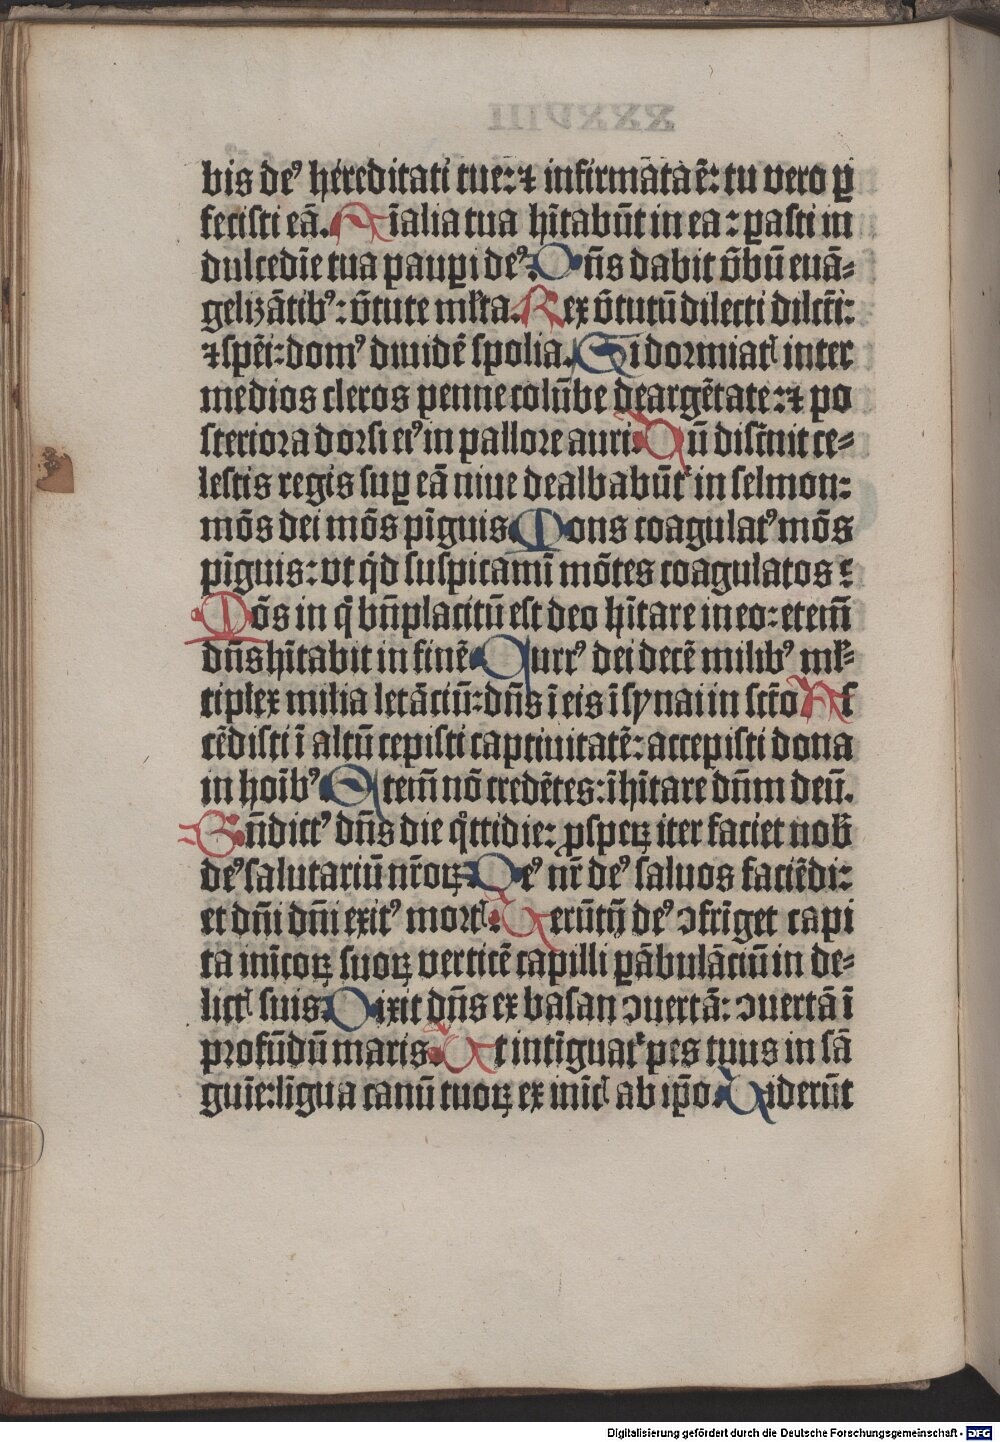 XXXVIII
bis deꝰ hereditati tue: ⁊ infirmata ē: tu vero ꝑ
fecisti eā. Aīalia tua hītabūt in ea: ꝑasti in
dulcedīe tua pauꝑi deꝰ. Dn̄s dabit v̄bū euā⸗
gelizātibꝰ: v̄tute ml̄ta. Rex v̄tutū dilecti dilct̄i:
⁊ spēi: domꝰ diuidē spolia. Si dormiatꝭ inter
medios cleros penne colūbe deargētate: ⁊ po
steriora dorsi eiꝰ in pallore auri. Dū discīnit ce⸗
lestis regis suꝑ eā niue dealbabūt᷑ in selmon:
mōs dei mōs pīguis. Mons coagulatꝰ mōs
pīguis: vt qͥd suspicamī mōtes coagulatos:
Mōs in q̄ bn̄placitū est deo hītare in eo: etem̄
dn̄s hītabit in finē. Currꝰ dei decē milibꝰ ml̄⸗
tiplex milia letāciū: dn̄s ī eis ī synai in sct̄o As
cēdisti ī altū cepisti captiuitatē: accepisti dona
in hoībꝰ. Etem̄ nō credētes: īhītare dn̄m deū.
Bn̄dictꝰ dn̄s die qͦttidie: ꝓspeꝝ iter faciet nob̄
deꝰ salutariū nr̄oꝝ. Deꝰ nr̄ deꝰ saluos faciēdi:
et dn̄i dn̄i exitꝰ mortꝭ. Uerūtn̄ deꝰ ↄfrīget capi
ta inīcoꝝ suoꝝ verticē capilli ꝑābulāciū in de⸗
lictꝭ suis. Dixit dn̄s ex basan ↄuertā: ↄuertā ī
profūdū maris. Ut intīguat᷑ pes tuus in sā
guīe: līgua canū tuoꝝ ex inīcꝭ ab ip̄o. Uiderūt
Digitalisierung gefördert durch die Deutsche Forschungsgemeinschaft - DFG